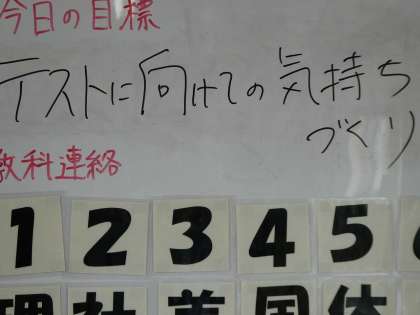 今日の目標
テストに向けての気持ち
づくり
教科連絡
1 2 3 4 5
理 社 美 国 体